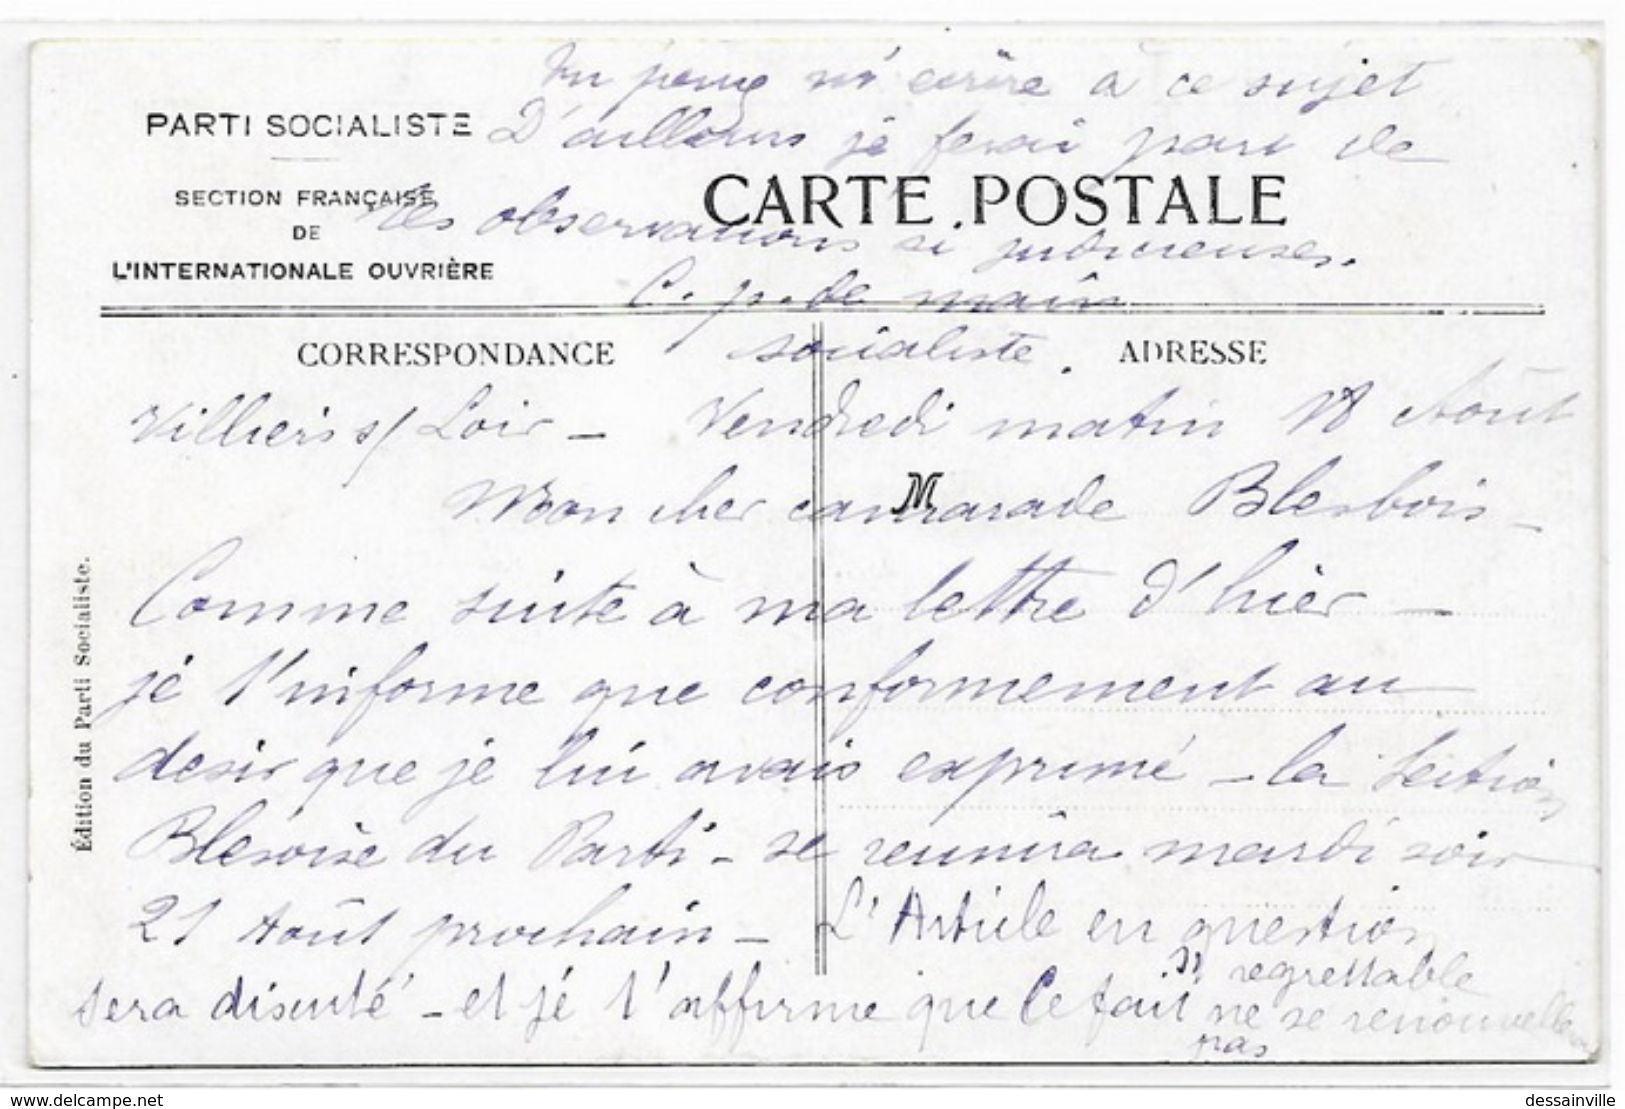 Tu peux m'écrire à ce sujet
PARTI SOCIALISTE
D'ailleurs je ferai part de
SECTION FRANÇAISE
DE
L'INTERNATIONALE OUVRIÈRE
CARTE POSTALE
tes observations si judicieuses.
C. p. de main
socialiste.
CORRESPONDANCE
ADRESSE
Villiers s/ Loir - Vendredi matin 18 Août
M
Mon cher camarade Blesbois -
Comme suite à ma lettre d'hier -
je t'informe que conformement au
desir que je lui avais exprimé - la Section
Blésoise du Parti - se reunira mardi soir
21 Août prochain - L'Article en question
sera discuté - et je t'affirme que ce fait si regrettable
ne se renouvellera
pas
Édition du Parti Socialiste.
delcampe.net
dessainville